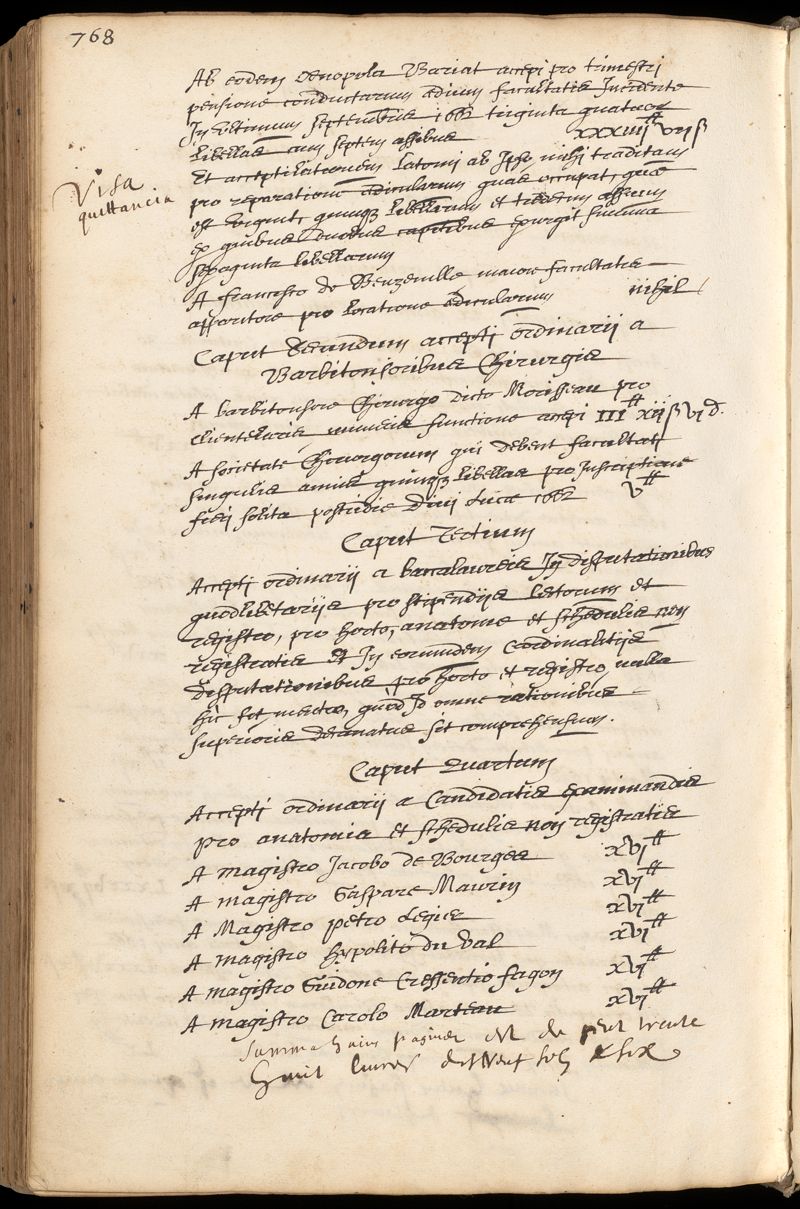 768
Ab eodem Oenopola Bariat accepi pro trimestri
pensione conductarum ædium facultatis Incidente
In ultimum septembris 1662 triginta quatuor
libellas cum septem assibus xxxiiij^tt vij ß
Et acceptilationem latomi ab Ipso mihi traditam
Visa
quittancia
pro reparatione ædicularum quas occupat, quæ
est viginti, quinq3 libellarum et tredecim assium
ex quibus duobus capitibus exurgit summa
sexaginta libellarum
A francisco de Beuzeville maiore facultatis
apparitore pro locatione ædicularum nihil
Caput Secundum accepti ordinarii a
Barbitonsoribus Chirurgis
A barbitonsore Chirurgo dicto Morisseau pro
clientelaris muneris functione accepi III^tt xij ß vj d.
A societate Chirurgorum qui debent facultati
singulis annis quinq3 libellas pro Inscriptione
fieri solita postridie Divi Lucæ 1662 V^tt
Caput Tertium
Accepti ordinarii a baccalaureis In disputationibus
quodlibetariis pro stipendiis lectorum et
registro, pro horto, anatome et schedulis non
registratis Et In eorumdem Cardinalitiis
disputationibus pro horto et registro, nulla
hic fit mentio, quòd Id omne rationibus
superioris decanatus sit comprehensum.
Caput Quartum
Accepti ordinarii a Candidatis examinandis
pro anatomia et schedulis non registratis
A magistro Jacobo de Bourges xvj^tt
A magistro Gaspare Maurin xvj^tt
A Magistro petro Legier xvj^tt
A magistro hypolito du Val xvj^tt
A magistro Guidone Cressentio fagon xvj^tt
A magistro Carolo Marteau xvj^tt
Summa huius paginæ est de cent trente
huit livres dixneuf solz